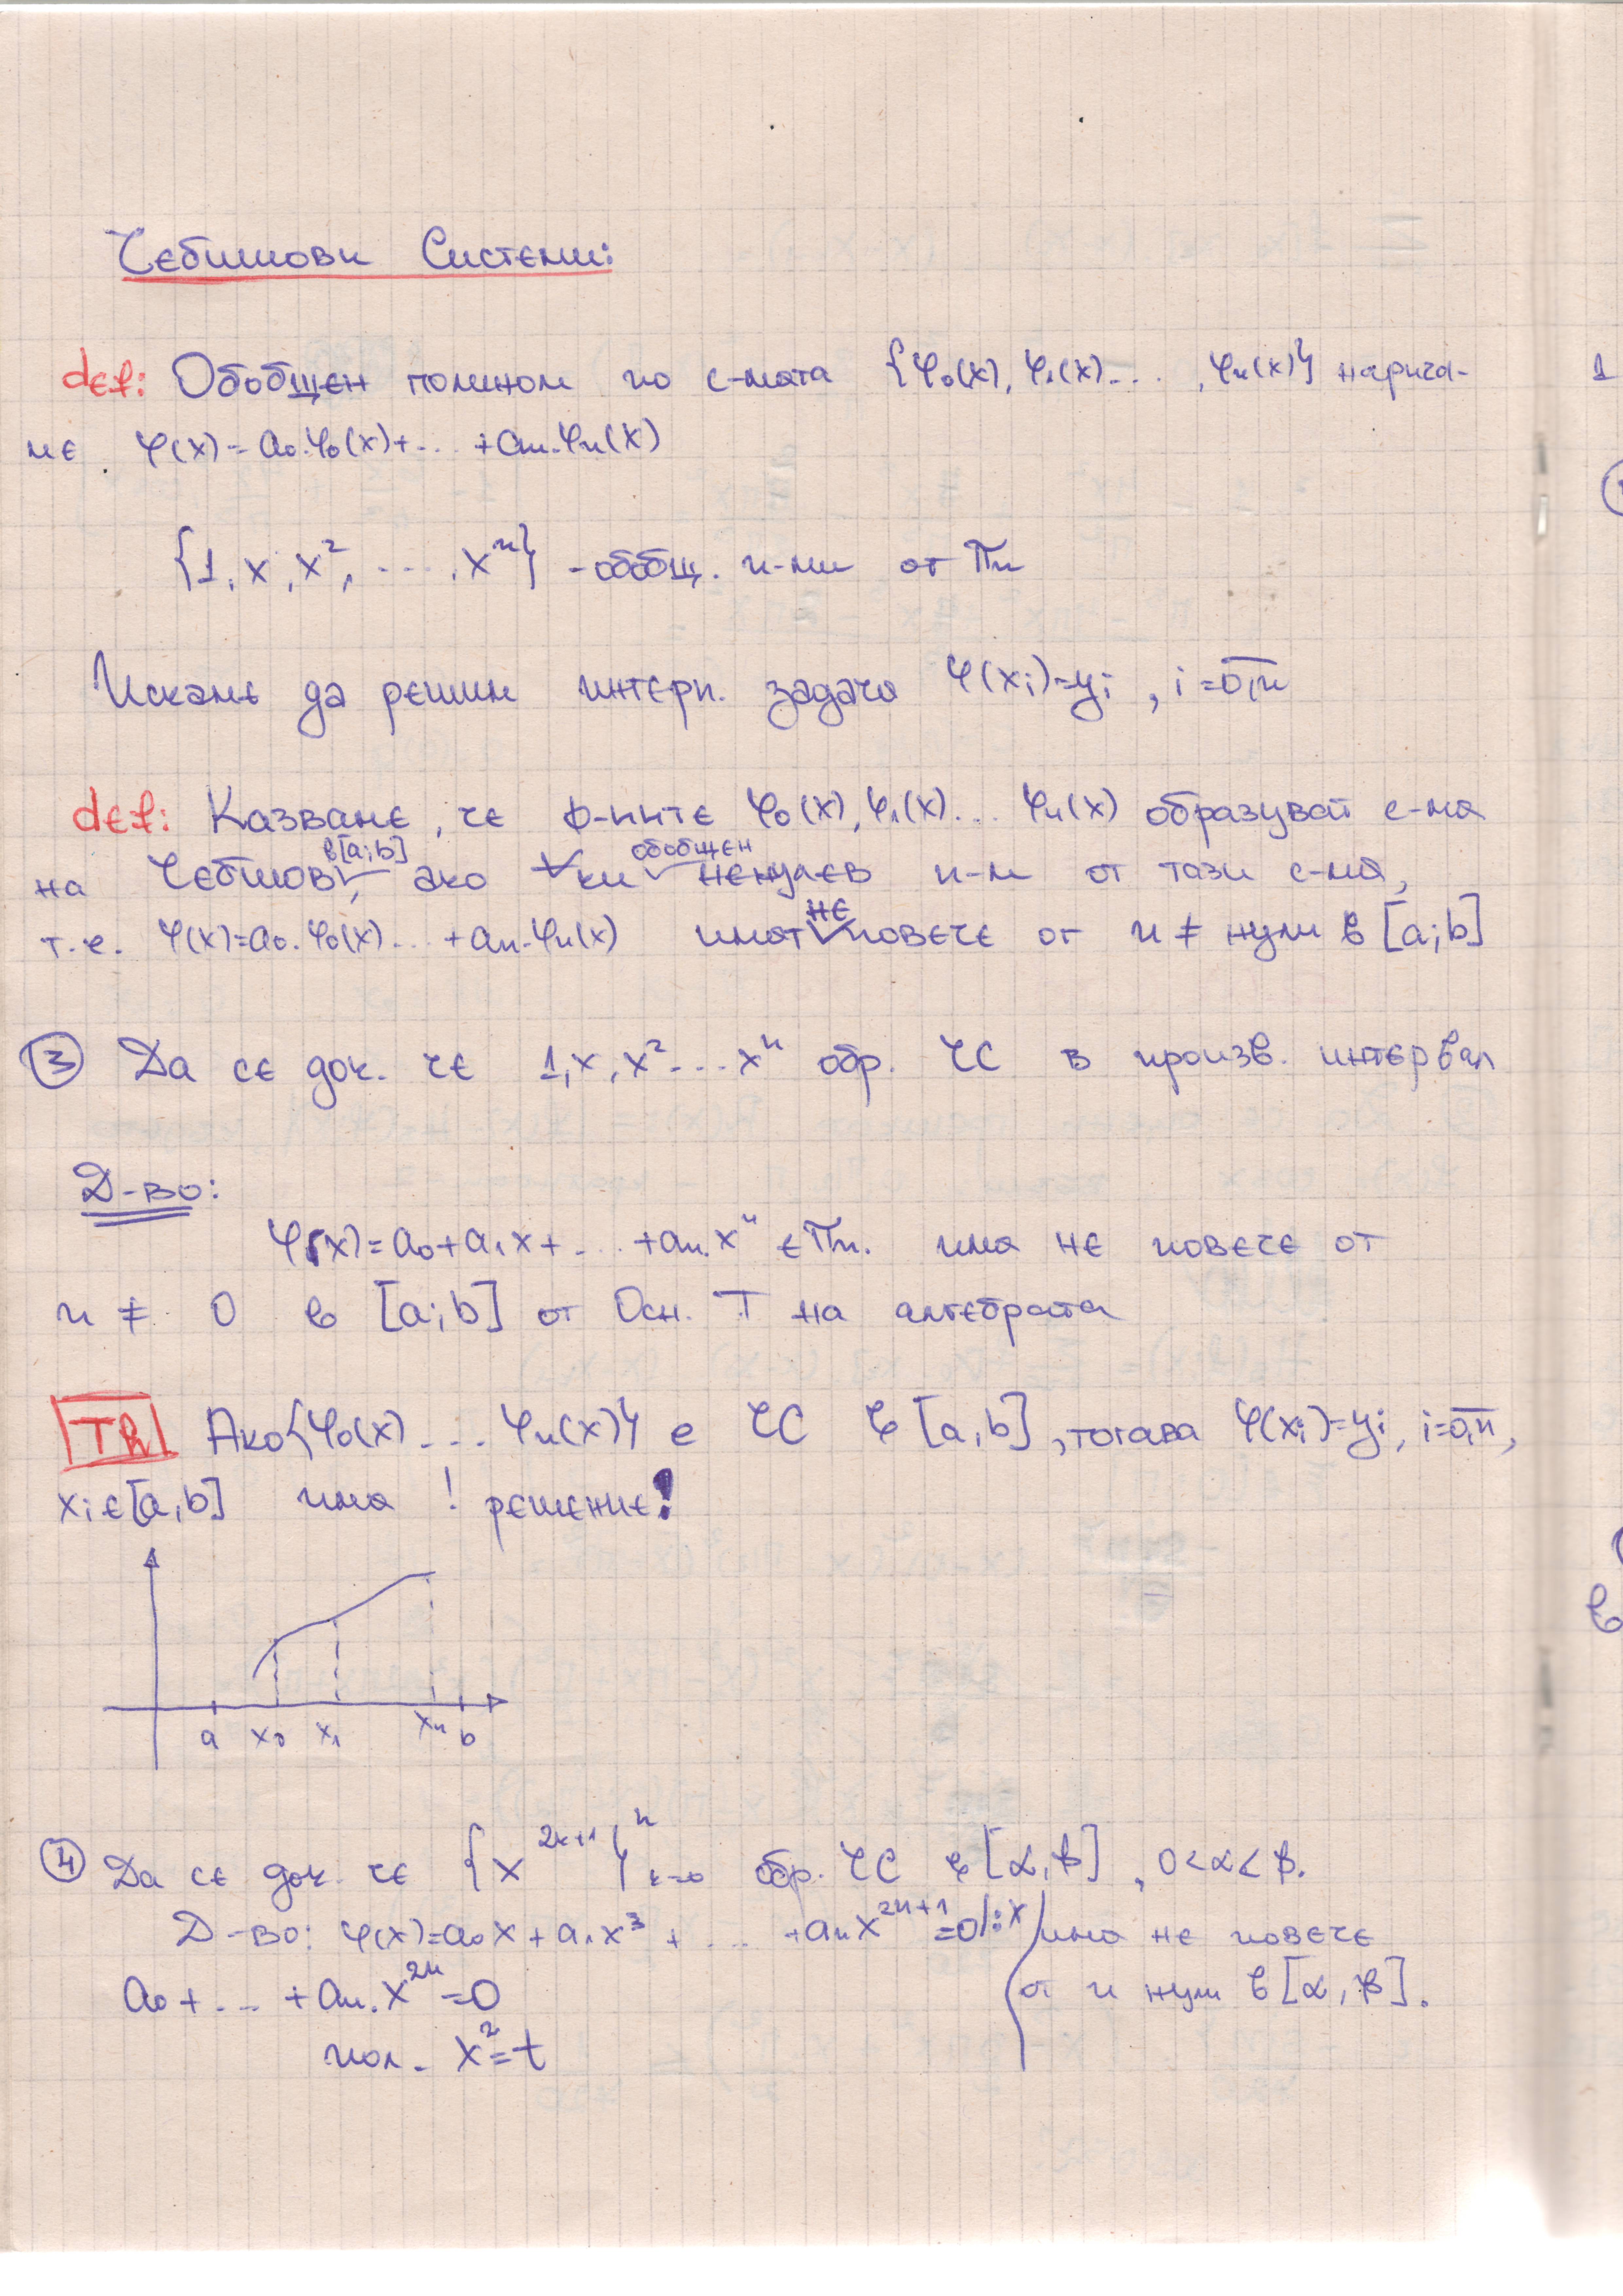 Чебишови Системи:
def: Обобщен полином по с-мата {φ₀(x), φ₁(x)... , φₙ(x)} нарича-
ме φ(x)=a₀.φ₀(x)+... +aₙ.φₙ(x)
{1, x, x², ...., xⁿ} - обобщ. п-ми от πₙ
Искаме да решим интерп. задача φ(xᵢ)=yᵢ , i=0,n
def: Казваме, че ф-ните φ₀(x), φ₁(x)... φₙ(x) образуват с-ма
на Чебишов в[a;b], ако ∀ки обобщен ненулев п-м от тази с-ма,
т.е. φ(x)=a₀.φ₀(x)... +aₙ.φₙ(x) имат не повече от n ≠ нули в [a;b]
③ Да се док. че 1, x, x²... xⁿ обр. ЧС в произв. интервал
Д-во:
φ(x)=a₀+a₁x+... +aₙ.xⁿ ∈ πₙ. има не повече от
n ≠ 0 в [a;b] от Осн. Т на алгебрата
Th Ако {φ₀(x) ... φₙ(x)} е ЧС в [a,b], тогава φ(xᵢ)=yᵢ, i=0,n,
xᵢ∈[a,b] има ! решение!
a x₀ x₁ xₙ b
④ Да се док. че {x²ᵏ⁺¹}ⁿₖ₌₀ обр. ЧС в [α,β] , 0<α<β.
Д-во: φ(x)=a₀x + a₁x³ + ... +aₙx²ⁿ⁺¹=0/:x има не повече
a₀+... +aₙ.x²ⁿ=0 от n нули в [α,β].
пол. x²=t
1
в